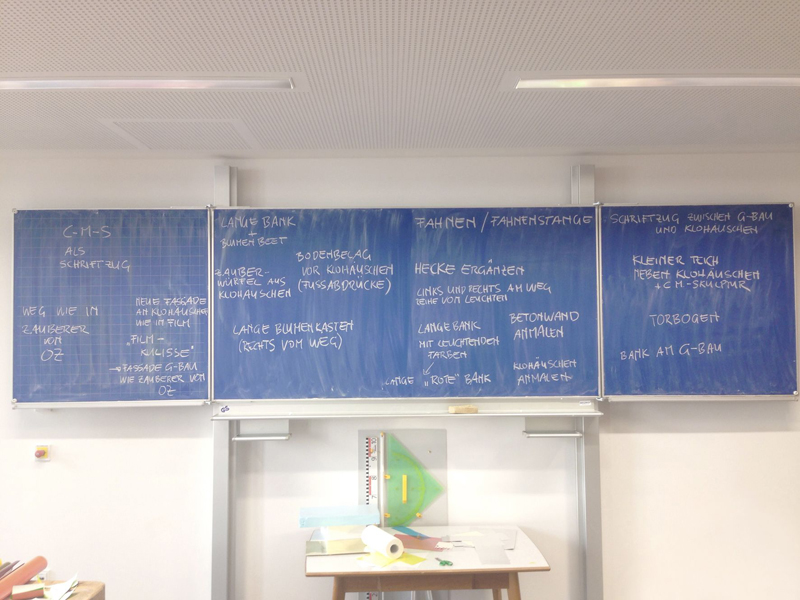 C-M-S
ALS
SCHRIFTZUG
WEG WIE IN
ZAUBERER
VON
OZ
NEUE FASSADE
AN KLOHÄUSCHEN
WIE IN FILM
"FILM-
KULISSE"
→ FASSADE G-BAU
WIE ZAUBERER VON
OZ
LANGE BANK
+
BLUMENBEET
BODENBELAG
VOR KLOHÄUSCHEN
(FUSSABDRÜCKE)
ZAUBER-
WÜRFEL AUS
KLOHÄUSCHEN
LANGE BLUMENKASTEN
(RECHTS VOM WEG)
FAHNEN / FAHNENSTANGE
HECKE ERGÄNZEN
LINKS UND RECHTS AM WEG
REIHE VON LEUCHTEN
LANGE BANK
MIT LEUCHTENDEN
FARBEN
LANGE "ROTE" BANK
BETONWAND
ANMALEN
KLOHÄUSCHEN
ANMALEN
SCHRIFTZUG ZWISCHEN G-BAU
UND KLOHÄUSCHEN
KLEINER TEICH
NEBEN KLOHÄUSCHEN
+ CM-SKULPTUR
TORBOGEN
BANK AM G-BAU
GS